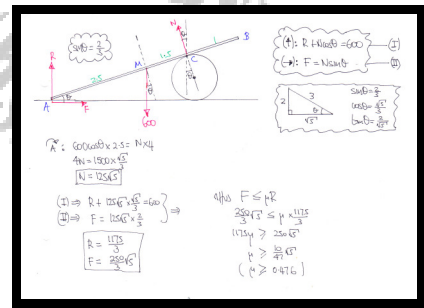 sinθ = 2/3
N
R
2.5
1.5
1
B
M
C
θ
A
F
600
(↑): R + Ncosθ = 600 — (I)
(→): F = Nsinθ — (II)
2
3
θ
√5
sinθ = 2/3
cosθ = √5/3
tanθ = 2/√5
A: 600cosθ × 2.5 = N × 4
4N = 1500 × √5/3
N = 125√5
(I) ⇒ R + 125√5 × √5/3 = 600
(II) ⇒ F = 125√5 × 2/3
⇒
R = 1175/3
F = 250/3 √5
Thus F ≤ μR
250/3 √5 ≤ μ × 1175/3
1175μ ≥ 250√5
μ ≥ 10/47 √5
(μ ≥ 0.476)